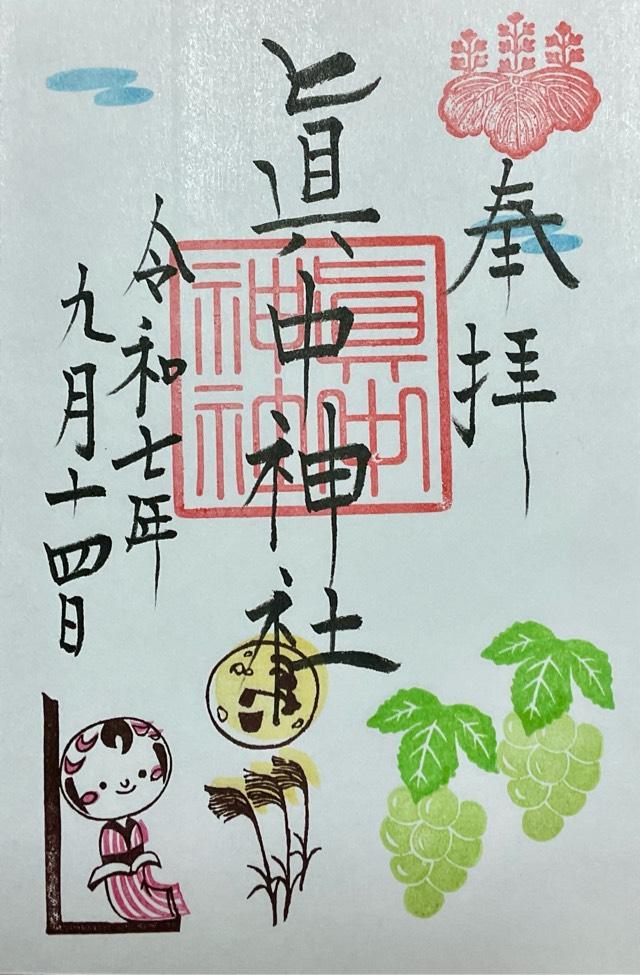 奉拝
眞中神社
眞中
神社
令和七年
九月十四日